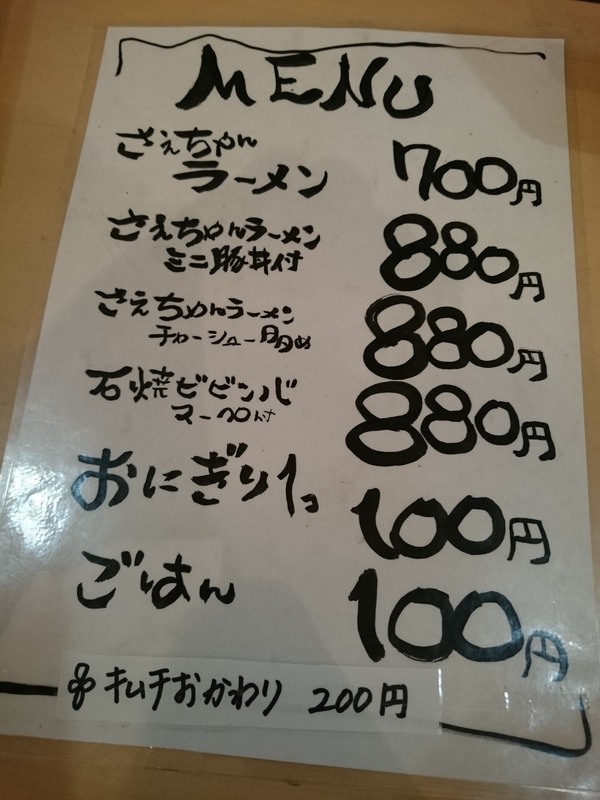 MENU
さえちゃん
ラーメン 700円
さえちゃんラーメン
ミニ豚丼付 880円
さえちゃんラーメン
チャーシュー 880円
石焼ビビンバ
880円
おにぎり1コ 100円
ごはん 100円
キムチおかわり 200円